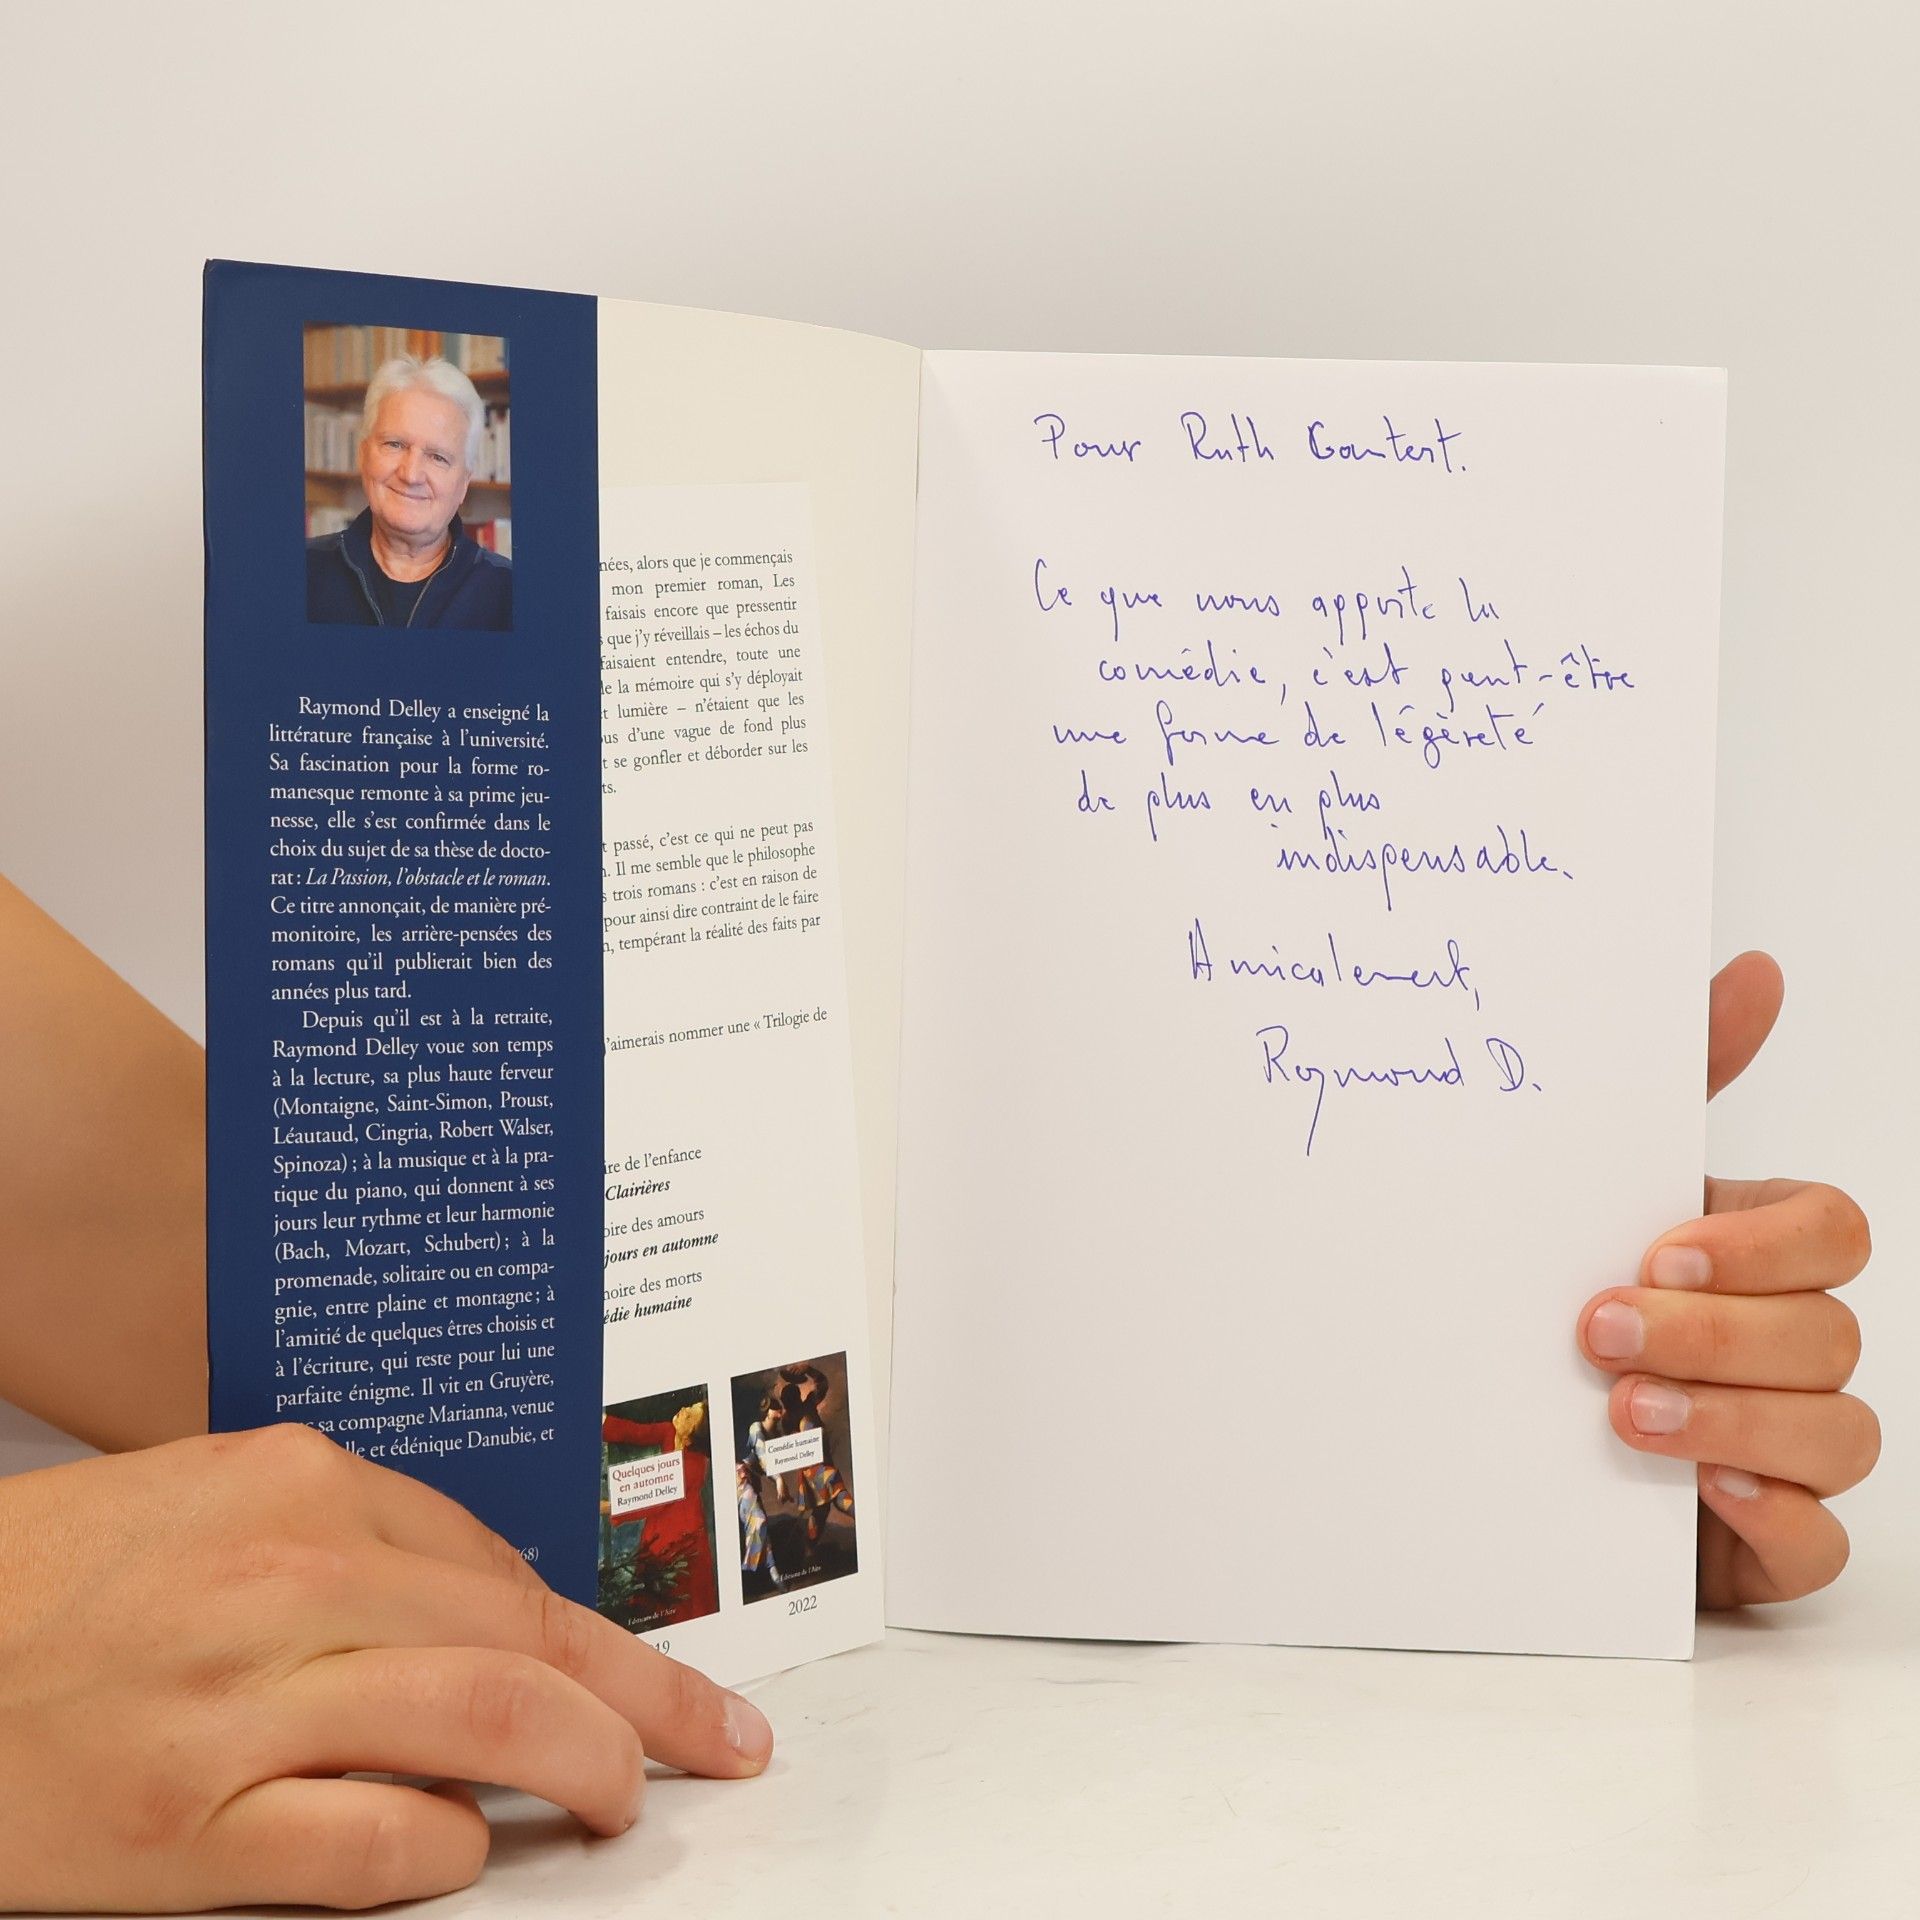 Raymond Delley a enseigné la
littérature française à l'université.
Sa fascination pour la forme ro-
manesque remonte à sa prime jeu-
nesse, elle s'est confirmée dans le
choix du sujet de sa thèse de docto-
rat : La Passion, l'obstacle et le roman.
Ce titre annonçait, de manière pré-
monitoire, les arrière-pensées des
romans qu'il publierait bien des
années plus tard.
Depuis qu'il est à la retraite,
Raymond Delley voue son temps
à la lecture, sa plus haute ferveur
(Montaigne, Saint-Simon, Proust,
Léautaud, Cingria, Robert Walser,
Spinoza) ; à la musique et à la pra-
tique du piano, qui donnent à ses
jours leur rythme et leur harmonie
(Bach, Mozart, Schubert) ; à la
promenade, solitaire ou en compa-
gnie, entre plaine et montagne ; à
l'amitié de quelques êtres choisis et
à l'écriture, qui reste pour lui une
parfaite énigme. Il vit en Gruyère,
sa compagne Marianna, venue
et édénique Danubie, et
68)
nées, alors que je commençais
mon premier roman, Les
faisais encore que pressentir
que j'y réveillais – les échos du
faisaient entendre, toute une
de la mémoire qui s'y déployait
t lumière – n'étaient que les
us d'une vague de fond plus
t se gonfler et déborder sur les
ts.
t passé, c'est ce qui ne peut pas
. Il me semble que le philosophe
s trois romans : c'est en raison de
pour ainsi dire contraint de le faire
n, tempérant la réalité des faits par
j'aimerais nommer une « Trilogie de
ire de l'enfance
Clairières
oire des amours
jours en automne
moire des morts
édie humaine
Quelques jours
en automne
Raymond Delley
Éditions de l'Aire
19
Comédie humaine
Raymond Delley
Éditions de l'Aire
2022
Pour Ruth Gantert.
Ce que nous apporte la
comédie, c'est peut-être
une forme de légèreté
de plus en plus
indispensable.
Amicalement,
Raymond D.